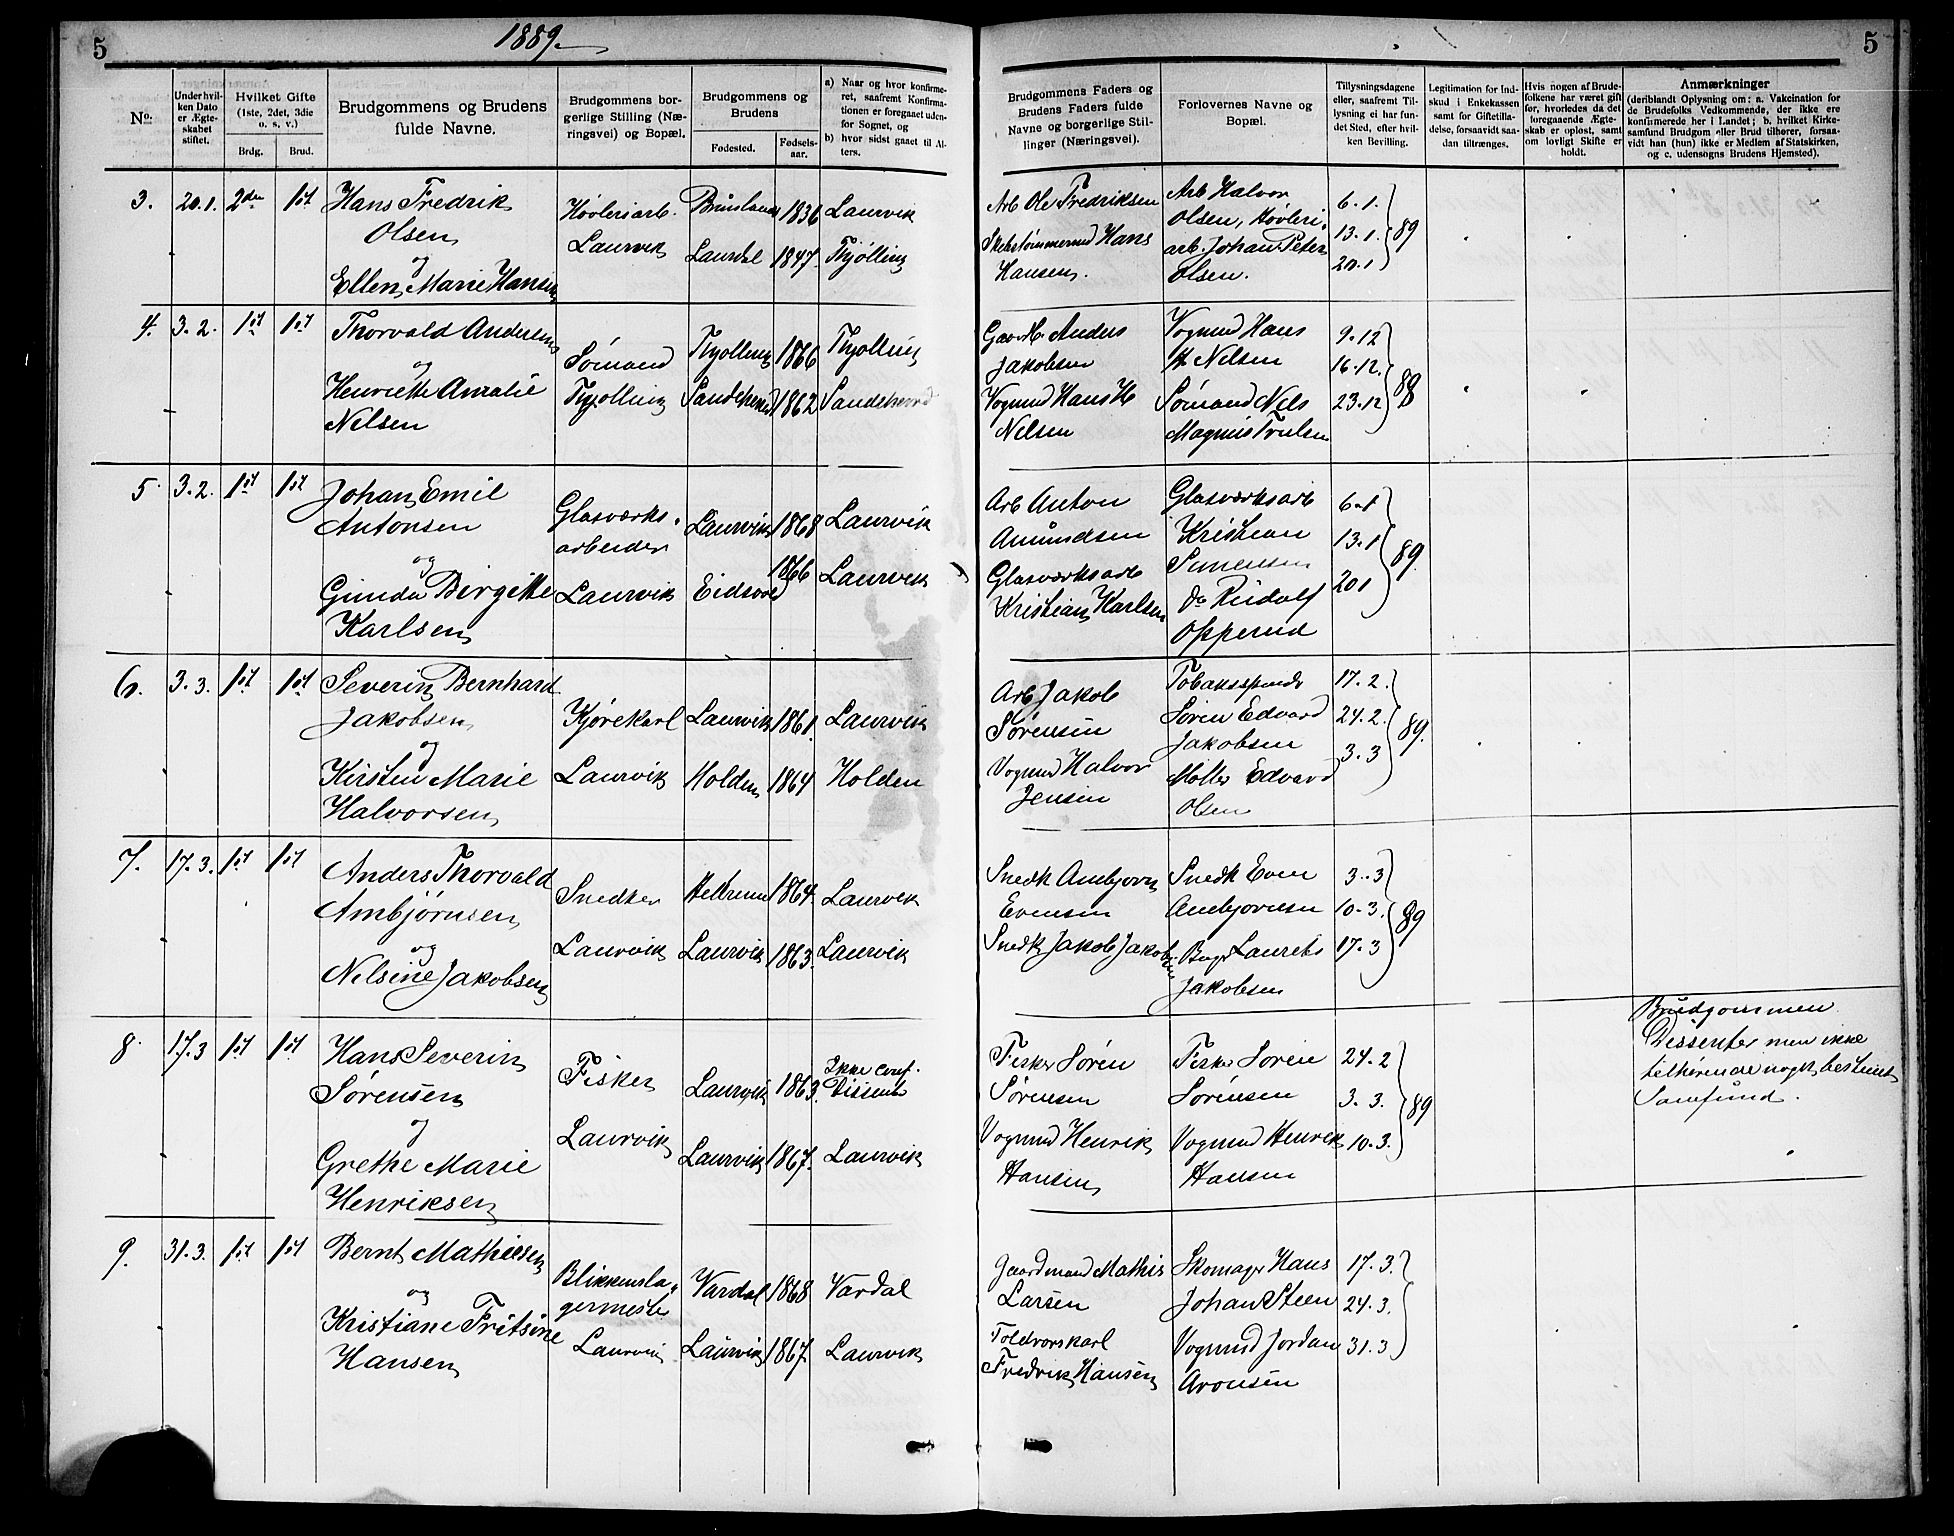 5
1889.
5
No.
Under hvil-
ken Dato
er Ægte-
skabet
stiftet.
Hvilket Gifte
(1ste, 2det, 3die
o. s. v.)
Brdg.
Brud.
Brudgommens og Brudens
fulde Navne.
Brudgommens bor-
gerlige Stilling (Næ-
ringsvei) og Bopæl.
Brudgommens og
Brudens
Fødested.
Fødsels-
aar.
a) Naar og hvor konfirme-
ret, saafremt Konfirma-
tionen er foregaaet uden-
for Sognet, og
b) hvor sidst gaaet til Al-
ters.
Brudgommens Faders og
Brudens Faders fulde
Navne og borgerlige Stil-
linger (Næringsvei).
Forlovernes Navne og
Bopæl.
Tillysningsdagene
eller, saafremt Til-
lysning ei har fun-
det Sted, efter hvil-
ken Bevilling.
Legitimation for Ind-
skud i Enkekassen
samt for Giftetilla-
delse, forsaavidt saa-
dan tiltrænges.
Hvis nogen af Brude-
folkene har været gift
før, hvorledes da det
foregaaende Ægte-
skab er opløst, samt
om lovligt Skifte er
holdt.
Anmærkninger
(deriblandt Oplysning om: a. Vakcination for
de Brudefolks Vedkommende, der ikke ere
konfirmerede her i Landet; b. hvilket Kirke-
samfund Brudgom eller Brud tilhører, forsaa-
vidt han (hun) ikke er Medlem af Statskirken,
og c. udensogns Brudens Hjemsted).
3. 20.1. 2den 1st
Hans Fredrik
Olsen
og
Ellen Marie Hansen
Høvleriarb.
Laurvik
1836 Laurvik
Laurdal 1847. Thjølling
Arb Ole Fredriksen
Hans
Hansen.
Arb Halvor
Olsen, Høvleri
arb. Johan Peter
Olsen.
6.1.
13.1.
20.1
89
4. 3.2. 1st 1st
Thorvald Andersen
og
Henriette Amalie
Nilsen
Sømand
Thjølling
Thjølling 1866 Thjølling
Sandeherred 1862 Sandeherred
Gaardb. Anders
Jakobsen
Vognmd Hans H
Nilsen
Vognmd Hans
H Nilsen
Sømand Nils
Magnus Trulsen
9.12
16.12.
23.12
88
5 3.2. 1st 1st
Johan Emil
Antonsen
og
Gunda Birgitte
Karlsen
Glasværks-
arbeider
Laurvik
Laurvik 1868 Laurvik
Eidsvold 1866 Laurvik
Arb Anton
Amundsen
Glasværksarb
Kristian Karlsen
Glasværksarb
Kristian
Simensen
Do Rudolf
Opperud
6.1
13.1
20.1
89.
6. 3.3. 1st 1st
Severin Bernhard
Jakobsen
og
Kirsten Marie
Halvorsen
Kjørekarl
Laurvik
Laurvik 1861. Laurvik
Holden 1864 Holden
Arb Jakob
Sørensen
Vognmd Halvor
Jensen
Tobaksspinder
Søren Edvard
Jakobsen
Møller Edvard
Olsen
17.2.
24.2.
3.3
89.
7. 17.3. 1st 1st
Anders Thorvald
Ambjørnsen
og
Nelsine Jakobsen
Snedker
Laurvik
1864. Laurvik
Laurvik 1863. Laurvik
Snedk Ambjørn
Evensen
Snedk Jakob Jakobsen
Snedk Even
Ambjørnsen
Laurits
Jakobsen
3.3
10.3.
17.3
89
8. 17.3 1st 1st
Hans Severin
Sørensen
og
Grethe Marie
Henriksen
Fisker
Laurvik
Laurvik 1863.
Ikke conf.
Dissenter
Laurvik 1867. Laurvik
Fisker Sørén
Sørensen
Vognmd Henrik
Hansen
Fisker Sørén
Sørensen
Vognmd Henrik
Hansen
24.2
3.3.
10.3.
89
Brudgommen
Dissenter men ikke
tilhørende noget bestemt
Samfund.
9. 31.3. 1st 1st
Bernt Mathiesen
og
Kristiane Fritsine
Hansen
Blikkensla-
germester
Laurvik
Vardal 1868 Vardal
Laurvik 1867. Laurvik
Gaardmand Mathis
Larsen
Toldvorskarl
Fredrik Hansen
Skomager Hans
Johan Steen
Vognmd Jordan
Aronsen
17.3.
24.3.
31.3